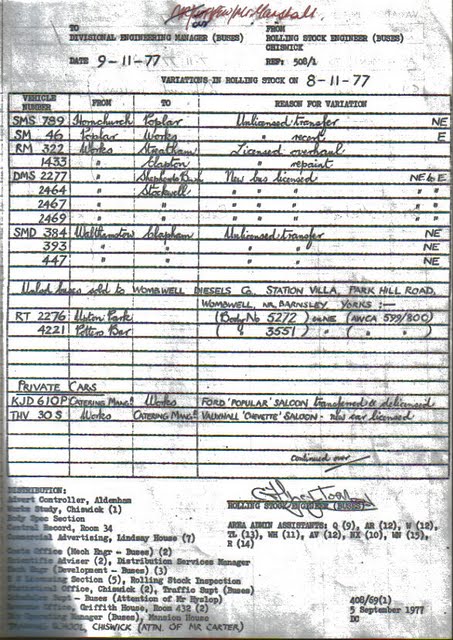 TO FROM
DIVISIONAL ENGINEERING MANAGER (BUSES) ROLLING STOCK ENGINEER (BUSES)
CHISWICK
DATE 9-11-77 REF: 508/1
VARIATIONS IN ROLLING STOCK ON 8-11-77
VEHICLE NUMBER FROM TO REASON FOR VARIATION
SMS 789 Hornchurch Poplar Unlicensed transfer NE
SM 46 Poplar Works " recert E
RM 322 Works Streatham Licensed overhaul
1433 " Clapton " repaint
DMS 2277 " Shepherds Bush New bus licensed NE to E
2464 " Stockwell " " " " "
2467 " " " " " " "
2469 " " " " " " "
SMD 384 Walthamstow Clapham Unlicensed transfer NE
393 " " " " NE
447 " " " " NE
buses sold to WOMBWELL DIESELS Co. STATION VILLA, PARK HILL ROAD,
WOMBWELL, NR. BARNSLEY YORKS :—
RT 2276 Upton Park (Body No 5272) NE (AWCA 599/800)
4221 Potters Bar ( " 3551 ) " ( " " )
PRIVATE CARS
KJD 610P CATERING MANGR Works FORD 'POPULAR' SALOON transferred & delicensed
THV 30 S Works CATERING MANGR VAUXHALL 'CHEVETTE' SALOON - new car licensed
continued over
DISTRIBUTION:
Advert Controller, Aldenham ROLLING STOCK ENGINEER (BUSES)
Works Study, Chiswick (1)
Body Spec Section AREA ADMIN ASSISTANTS: Q (9), AR (12), W (12),
Record, Room 34 TL (13), WH (11), AV (12), NX (10), WN (15),
Commercial Advertising, Lindsay House (7) R (14)
Costs Office (Mech Engr - Buses) (2)
Scientific Adviser (2), Distribution Services Manager
Engr (Development - Buses) (3)
Licensing Section (5), Rolling Stock Inspection
Office, Chiswick (2), Traffic Supt (Buses)
Supt - Buses (Attention of Mr Hyslop)
Office, Griffith House, Room 432 (2) 408/69(1)
Operating Manager (Buses), Mansion House 5 September 1977
SCHOOL, CHISWICK (ATTN. OF MR CARTER) DC